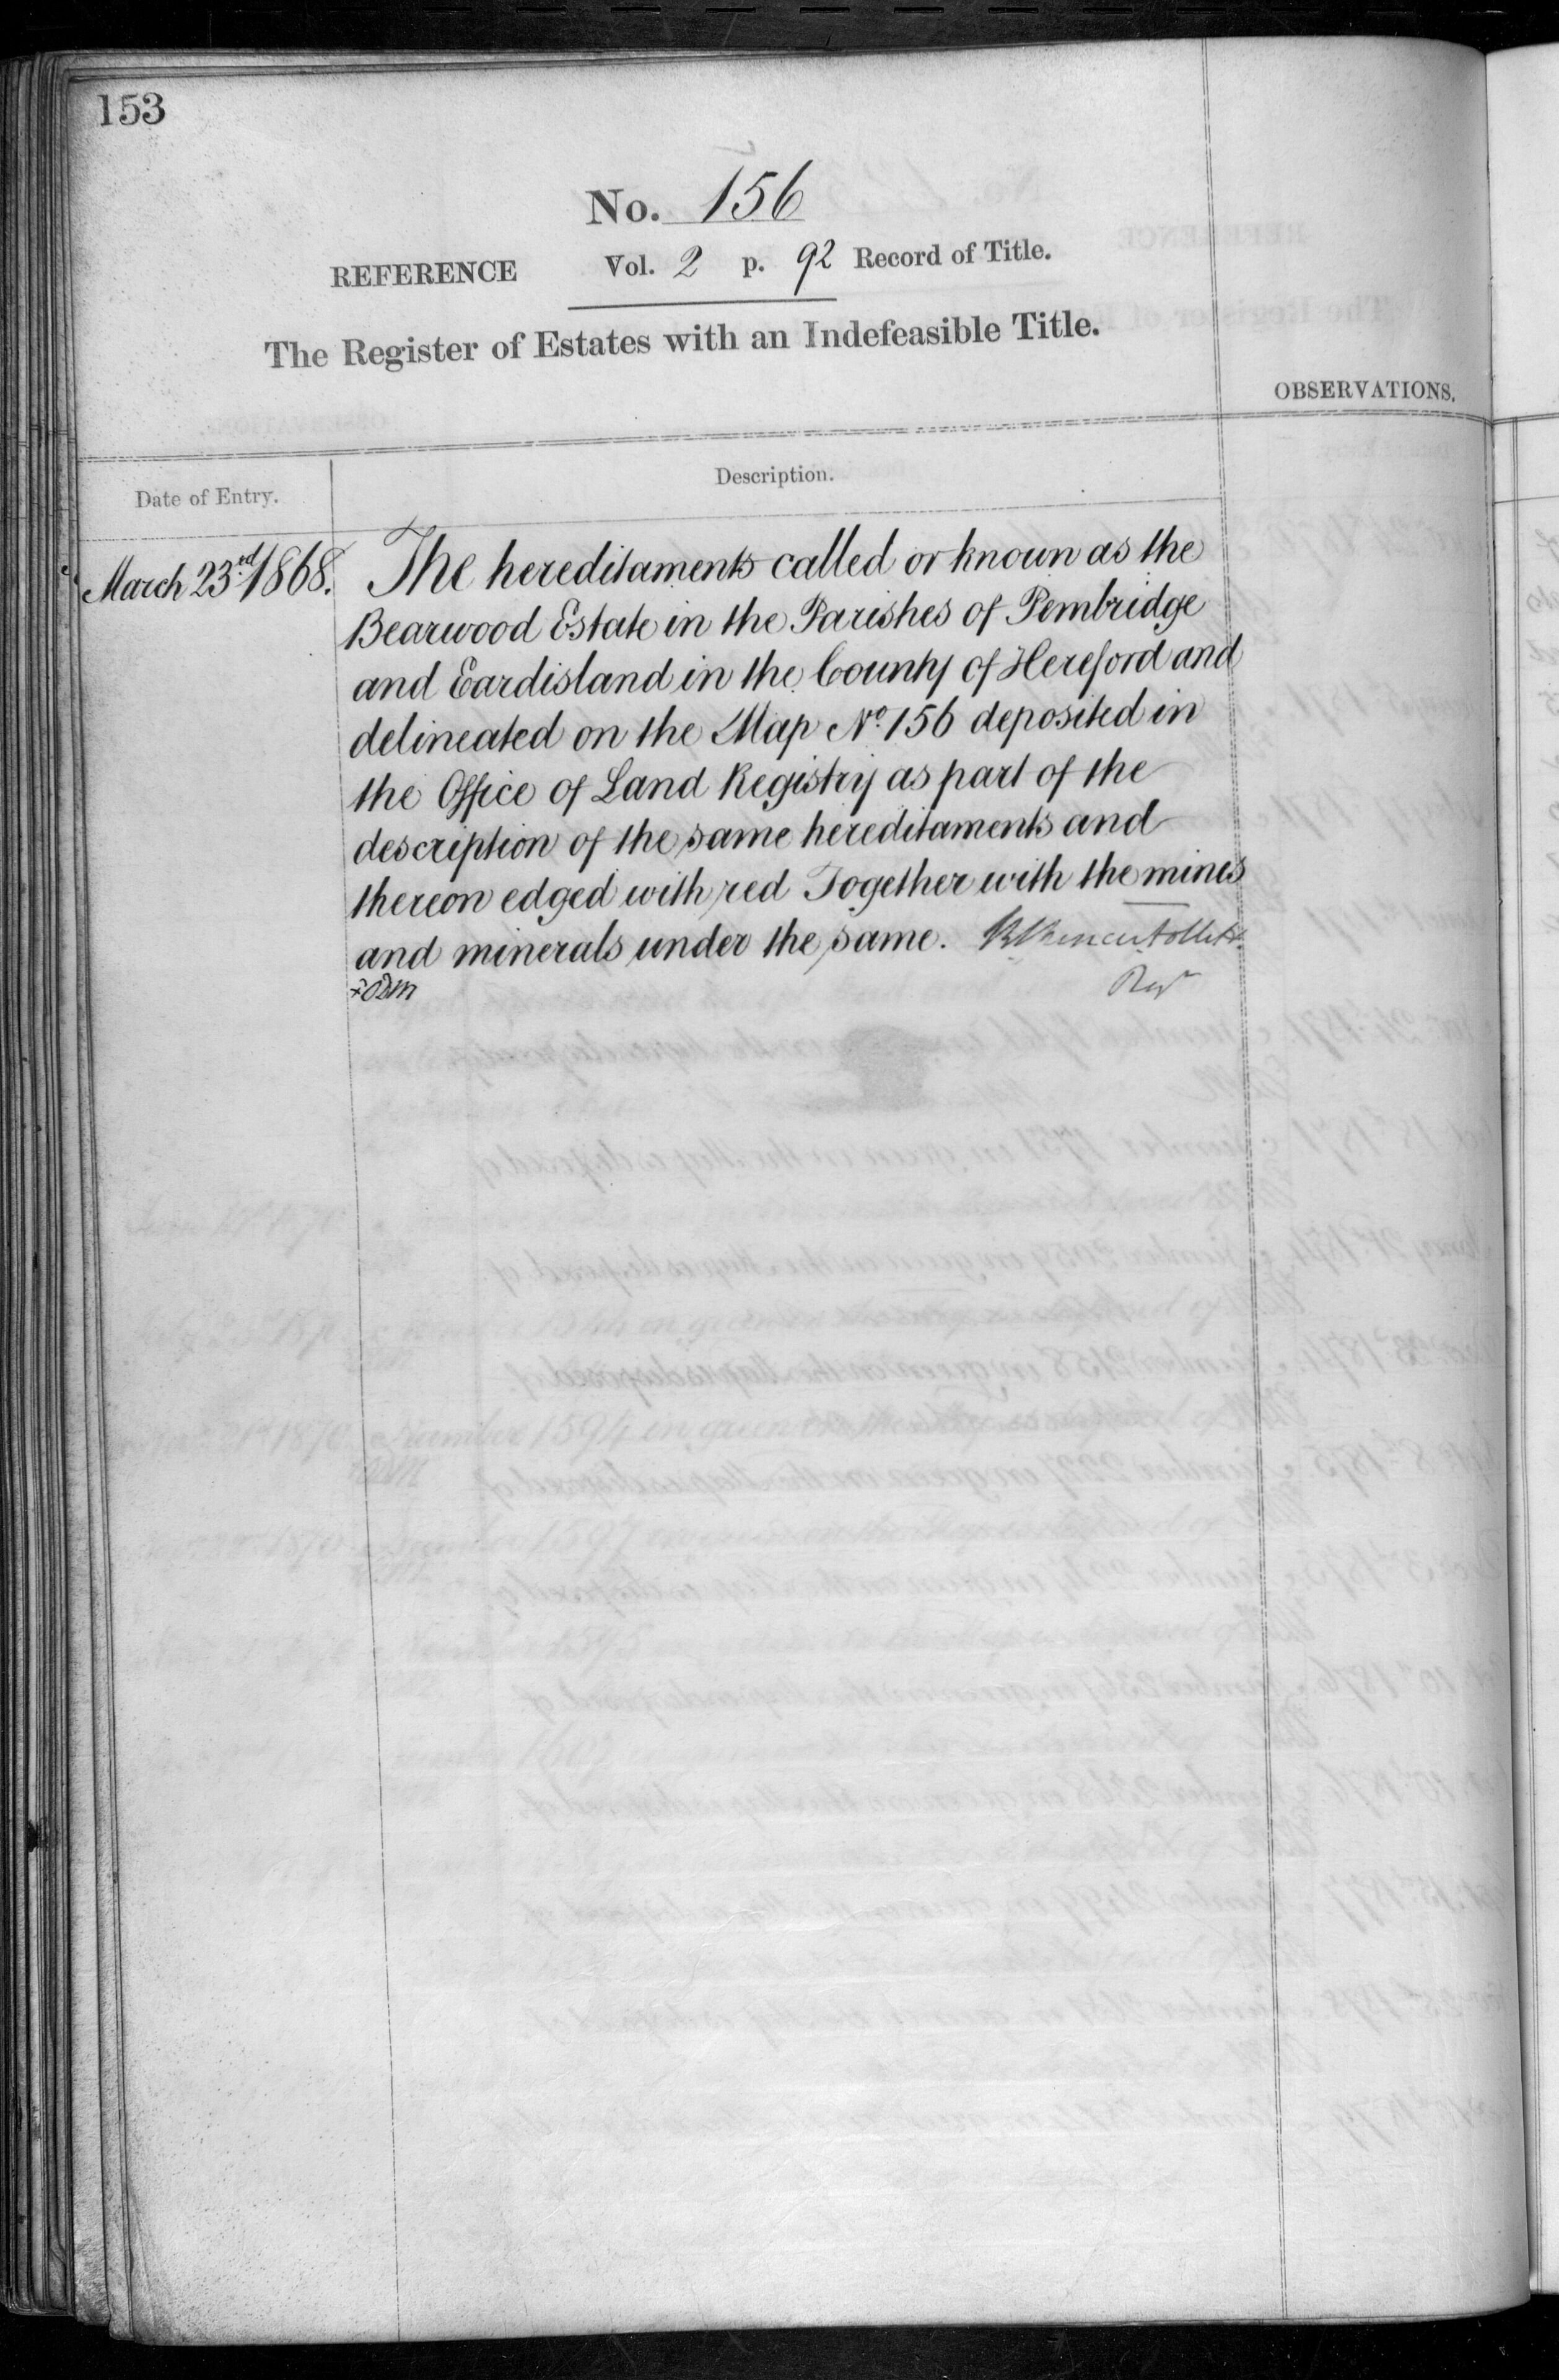 153
No. 156
REFERENCE Vol. 2 p. 92 Record of Title.
The Register of Estates with an Indefeasible Title.
OBSERVATIONS.
Date of Entry.
Description.
March 23rd 1868.
The hereditaments called or known as the
Bearwood Estate in the Parishes of Pembridge
and Eardisland in the County of Hereford and
delineated on the Map No. 156 deposited in
the Office of Land Registry as part of the
description of the same hereditaments and
thereon edged with red Together with the mines
and minerals under the same.